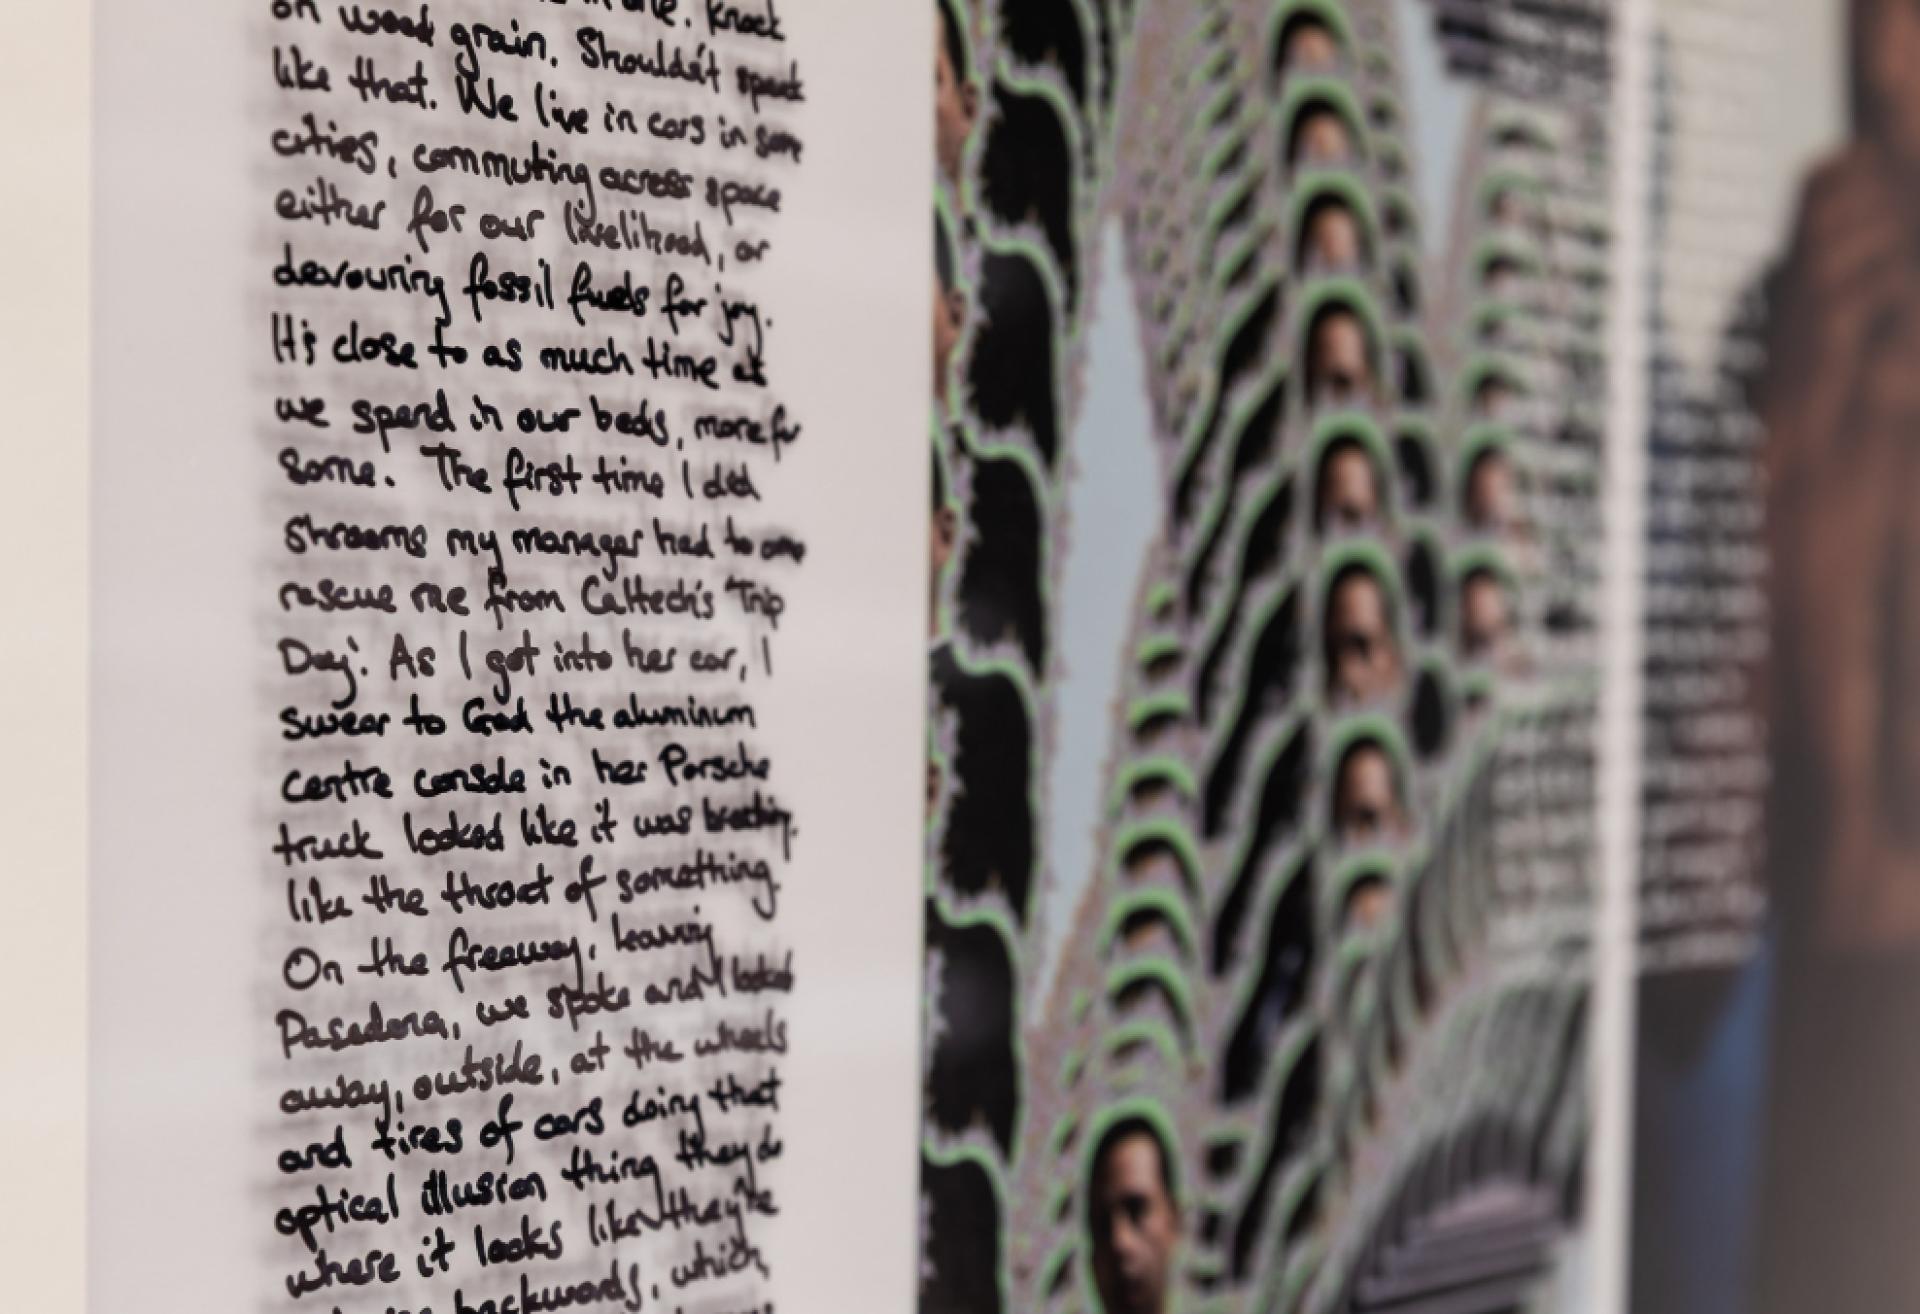 in one. Knock
on wood grain. Shouldn't speak
like that. We live in cars in some
cities, commuting across space
either for our livelihood, or
devouring fossil fuels for joy.
It's close to as much time as
we spend in our beds, more for
some. The first time I did
shrooms my manager had to come
rescue me from Caltech's 'Trip
Day'. As I got into her car, I
swear to God the aluminum
centre console in her Porsche
truck looked like it was breathing.
like the throat of something.
On the freeway, leaving
Pasadena, we spoke and I looked
away, outside, at the wheels
and tires of cars doing that
optical illusion thing they do
where it looks like they're
backwards, which